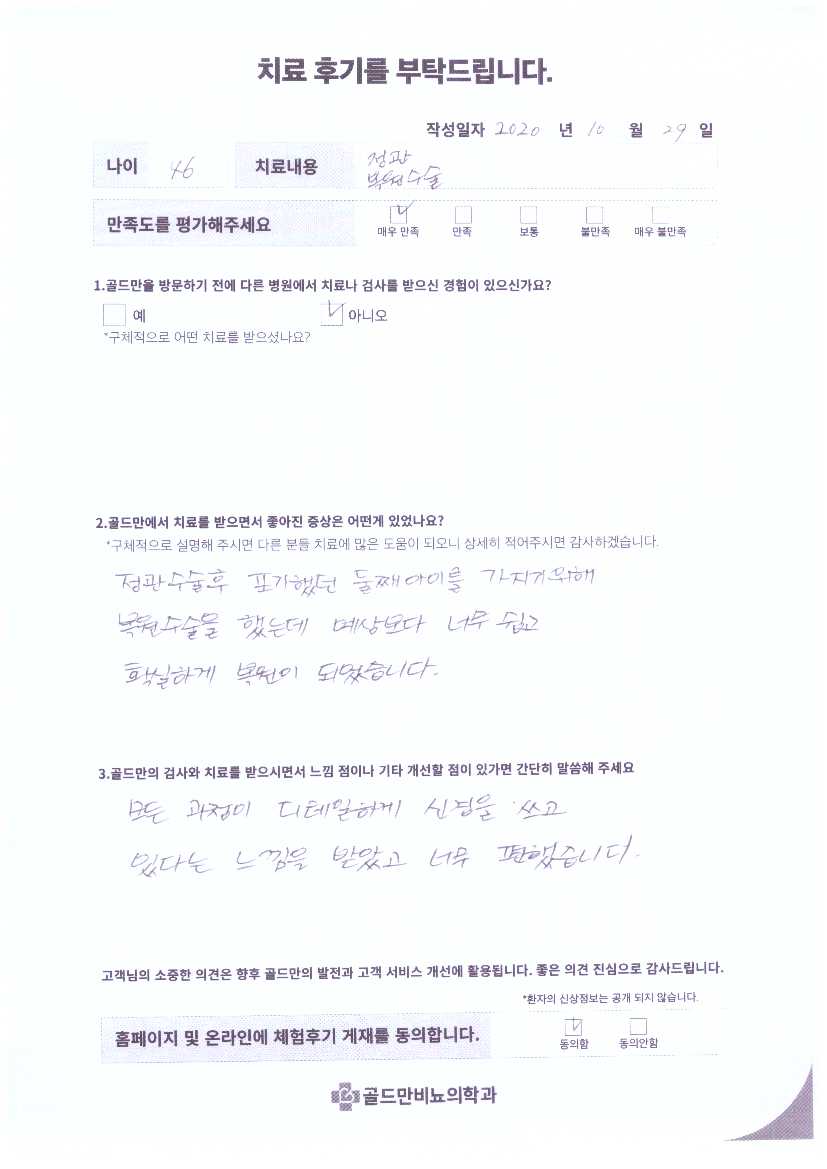 치료 후기를 부탁드립니다.
작성일자 2020 년 10 월 29 일
나이 46 치료내용 정관
복원수술
만족도를 평가해주세요 매우 만족 만족 보통 불만족 매우 불만족
1.골드만을 방문하기 전에 다른 병원에서 치료나 검사를 받으신 경험이 있으신가요?
예 아니오
*구체적으로 어떤 치료를 받으셨나요?
2.골드만에서 치료를 받으면서 좋아진 증상은 어떤게 있었나요?
*구체적으로 설명해 주시면 다른 분들 치료에 많은 도움이 되오니 상세히 적어주시면 감사하겠습니다.
정관수술후 포기했던 둘째아이를 가지기위해
복원수술을 했는데 예상보다 너무 쉽고
확실하게 복원이 되었습니다.
3.골드만의 검사와 치료를 받으시면서 느낌 점이나 기타 개선할 점이 있가면 간단히 말씀해 주세요
모든 과정이 디테일하게 신경을 쓰고
있다는 느낌을 받았고 너무 편했습니다.
고객님의 소중한 의견은 향후 골드만의 발전과 고객 서비스 개선에 활용됩니다. 좋은 의견 진심으로 감사드립니다.
*환자의 신상정보는 공개 되지 않습니다.
홈페이지 및 온라인에 체험후기 게재를 동의합니다. 동의함 동의안함
골드만비뇨의학과